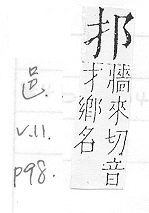 牆來切音
才鄉名
邑.
v.11.
p98.